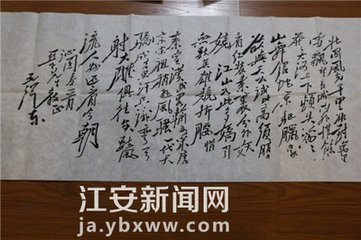 北国风光千里冰封万里
雪飘望长城内外惟余
莽大河上下顿失滔
山舞银蛇原驰腊象
欲与天公试比高须晴
日看红装素裹分外妖
娆江山如此多娇引
无数英雄竞折腰惜
秦皇汉武略输文采唐
宗宋祖稍逊风骚一代天
骄成吉思汗只识弯弓
射大雕俱往矣数风
流人物还看今朝
沁园春雪
毛泽东
江安新闻网
ja.ybxww.com